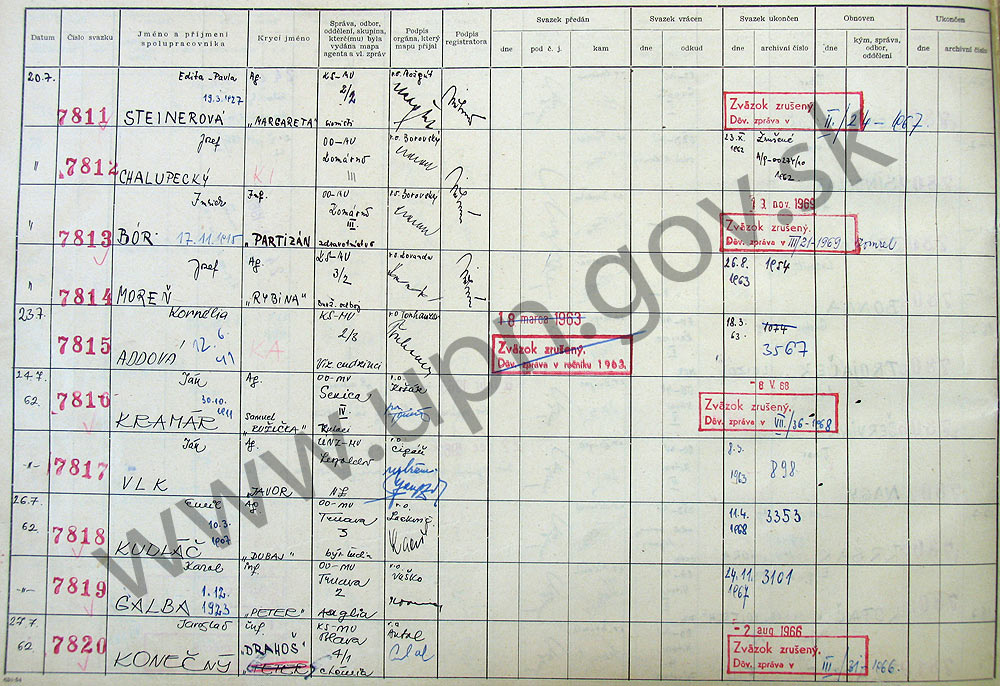 Datum
Číslo svazku
Jméno a příjmení spolupracovníka
Krycí jméno
Správa, odbor, oddělení, skupina, které(mu) byla vydána mapa agenta a vl. zpráv
Podpis orgána, který mapu přijal
Podpis registratora
Svazek předán
dne
pod č. j.
kam
Svazek vrácen
dne
odkud
Svazek ukončen
dne
archivní číslo
Obnoven
dne
kým, správa, odbor, oddělení
Ukončen
dne
archivní číslo
20.7.
7811
Edita-Pavla
19.3.1927
STEINEROVÁ
Ag.
"MARGARETA"
KS-MV
2/2
Zväzok zrušený
Dův. zpráva v II./24-1967.
"
7812
Jozef
CHALUPECKÝ
KI
OO-MV
Komárno
III
r.o. Borovský
23.X.
1962
Zrušené
A/9-00274/10
1962
"
7813
Imrich
BÓR 17.11.1915
Inf.
"PARTIZÁN"
OO-MV
Komárno
III.
zdravotníctvo
r.o. Borovský
13. nov. 1969
Zväzok zrušený.
Dův. zpráva v III/21-1969
Zomrel
"
7814
Jozef
MOREŇ
Ag.
"RYBINA"
KS-MV
3/2
26.8.
1963
1954
23.7.
7815
Kornélia
ADDOVÁ 12.6
41
KA
KS-MV
2/3
Víz. cudzinci
18 marca 1963
Zväzok zrušený.
Dův. zpráva v ročníku 1963.
18.3.
63.
1074
3567
24.7.
62.
7816
Ján
30.10.
1911
KRAMÁR
Ag.
Samuel
"RUŽIČKA"
OO-MV
Senica
IV
Kulaci
r.o.
- 8 V. 68
Zväzok zrušený.
Dův. zpráva v VII./36-1968
-"-
7817
Ján
VLK
Ag.
"JAVOR"
ÚNZ-MV
Leopoldov
NZ
r.o.
Cigáň
8.3.
1963
898
26.7.
62.
7818
Emil
10.3.
1907
KUDLÁČ
Ag.
"DUBAJ"
OO-MV
Trnava
3
býv. ludia
r.o.
11.4.
1968
3353
-"-
7819
Karol
1.12.
GALBA 1923
inf.
"PETER"
OO-MV
Trnava
2
Anglia
r.o.
Vaško
24.11.
1967
3101
27.7.
62.
7820
Jaroslav
KONEČNÝ
inf.
"DRAHOŠ"
"PETER"
KS-MV
Blava
4/1
chémia
r.o
Antal
- 2 aug 1966
Zväzok zrušený.
Dův. zpráva v III./31-1966.
www.upn.gov.sk